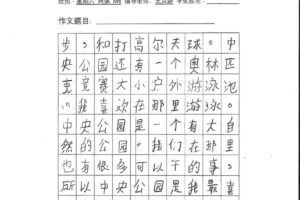 作文题目：
步，和打高尔夫球。中
央公园还有一个奥林匹
克竞赛大小户外游泳池
。我喜欢在那里游泳。
中央公园是一个有大自
然的公园。我们在那里
也有很多可以干的事，
所以中央公园是我最喜